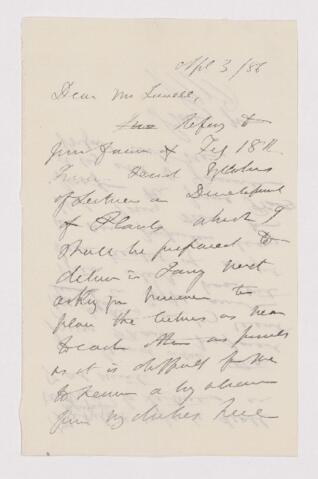 Apl 3/86
Dear Mr Lowell,
Refering to
your favor of Feb 18th
syllabus
of Lectures on Development
of Plants which I
shall be prepared to
deliver in Jany next
asking you however to
place the lectures as near
to each other as possible
as it is difficult for me
to secure a long absence
from my duties here